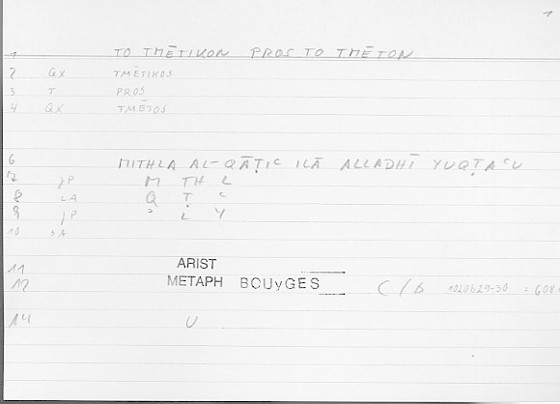 1
1 TO TMĒTIKON PROS TO TMĒTON
2 GX TMĒTIKOS
3 T PROS
4 GX TMĒTOS
6 MITHLA AL-QĀṬIC ILĀ ALLADHĪ YUQṬAcU
7 JP M TH L
8 LA Q Ṭ c
9 JP ' L Y
10 SA
11 ARIST
12 METAPH BOUyGES C / Δ 1020b29-30 = 608.
14 U